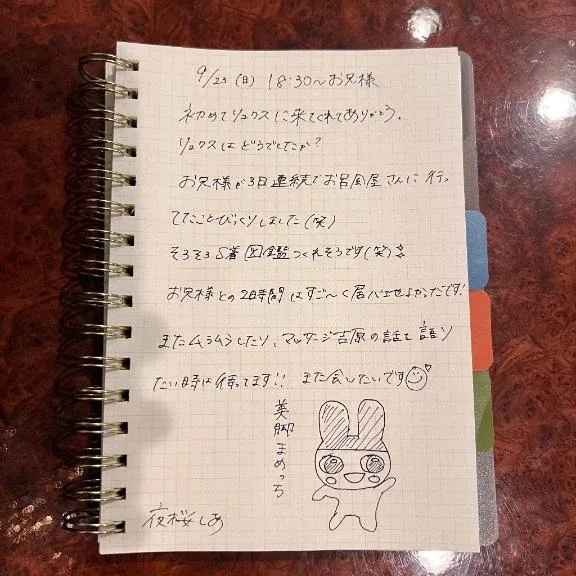 9/23(日) 18:30〜お兄様
初めてリュクスに来てくれてありがとう.
リュクスはどうでしたか?
お兄様が3日連続でお呂風屋さんに行っ
てたことびっくりしました(笑)
そろそろS着図鑑つくれそうです(笑)
お兄様との2時間はすご〜く居バエせよかったです!
またムラムラしたり、マッサージ吉原の話を語り
たい時は待ってます!! また会したいです
美脚まめっち
夜桜しあ